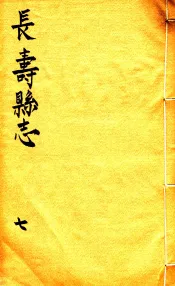 長壽縣志
七